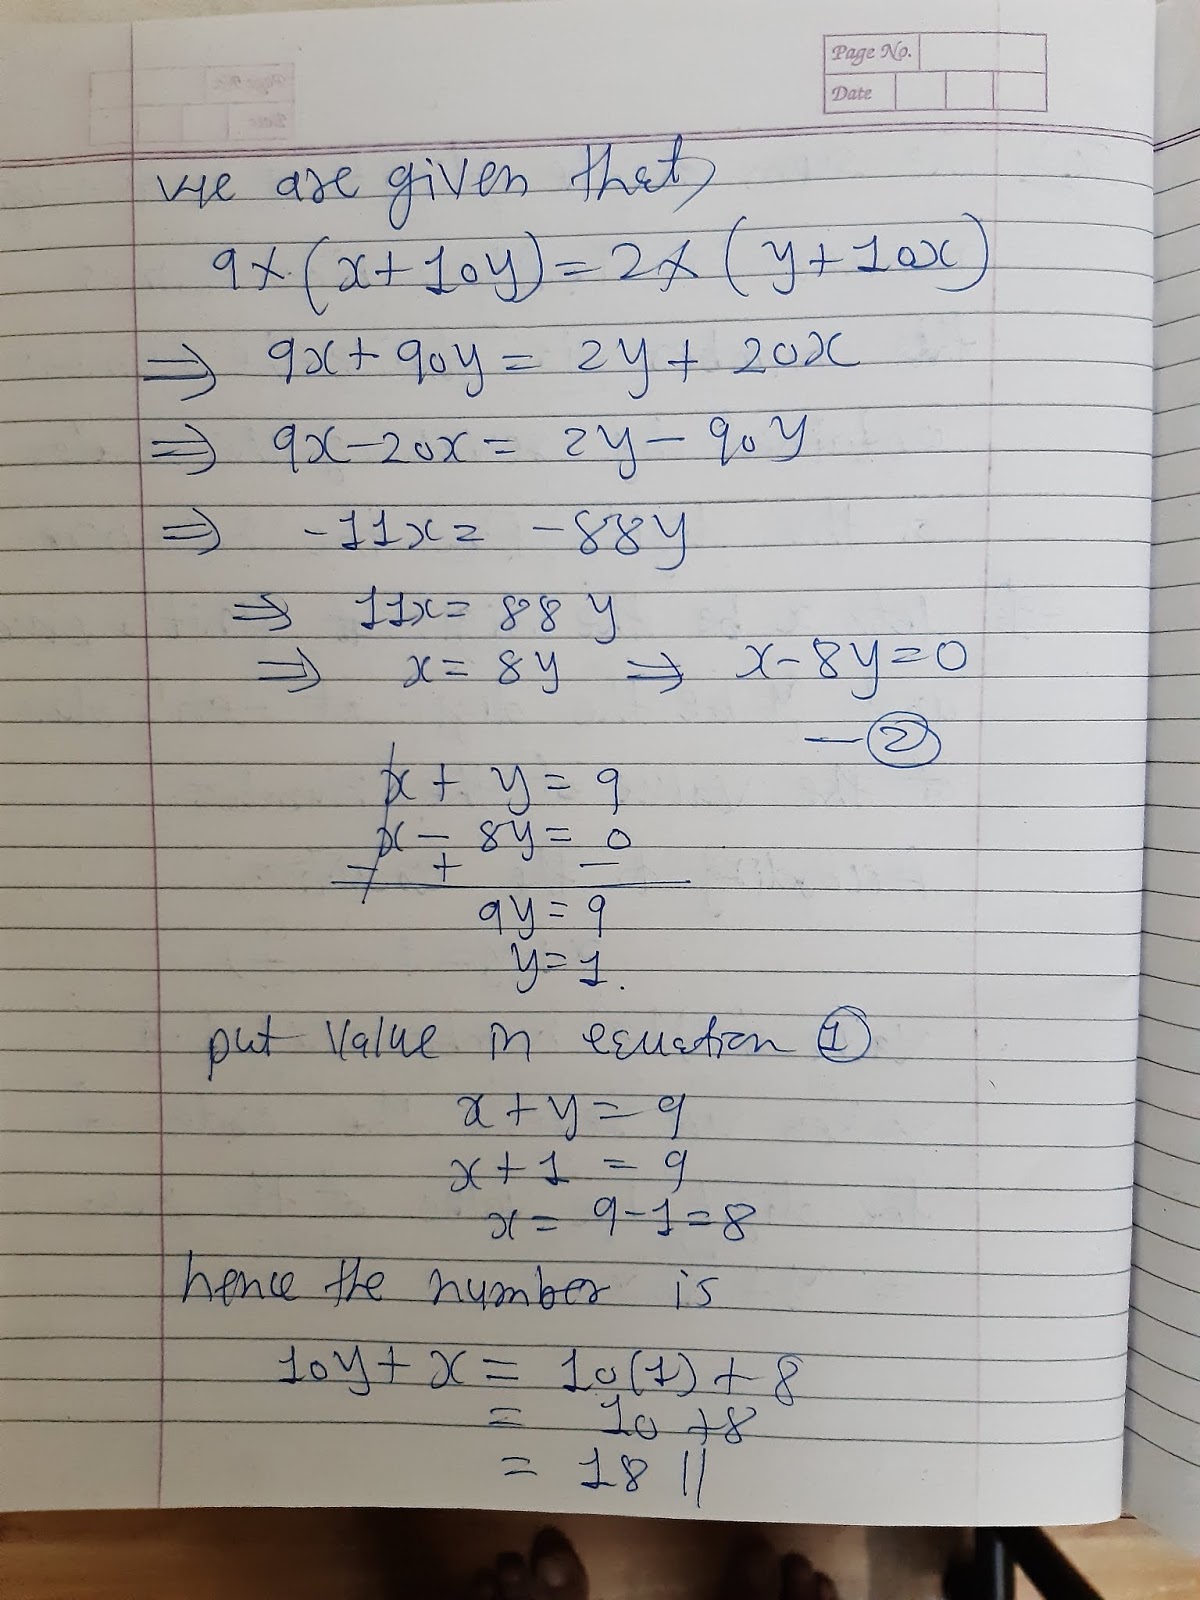 Page No.
Date
We are given that,
9×(x+10y)=2×(y+10x)
⇒ 9x+90y = 2y+20x
⇒ 9x-20x = 2y-90y
⇒ -11x = -88y
⇒ 11x = 88y
⇒ x = 8y ⇒ x-8y=0
-②
x + y = 9
x - 8y = 0
- + -
9y = 9
y=1.
put value in equation ①
x+y = 9
x+1 = 9
x = 9-1=8
hence the number is
10y+x = 10(1)+8
= 10+8
= 18 ||